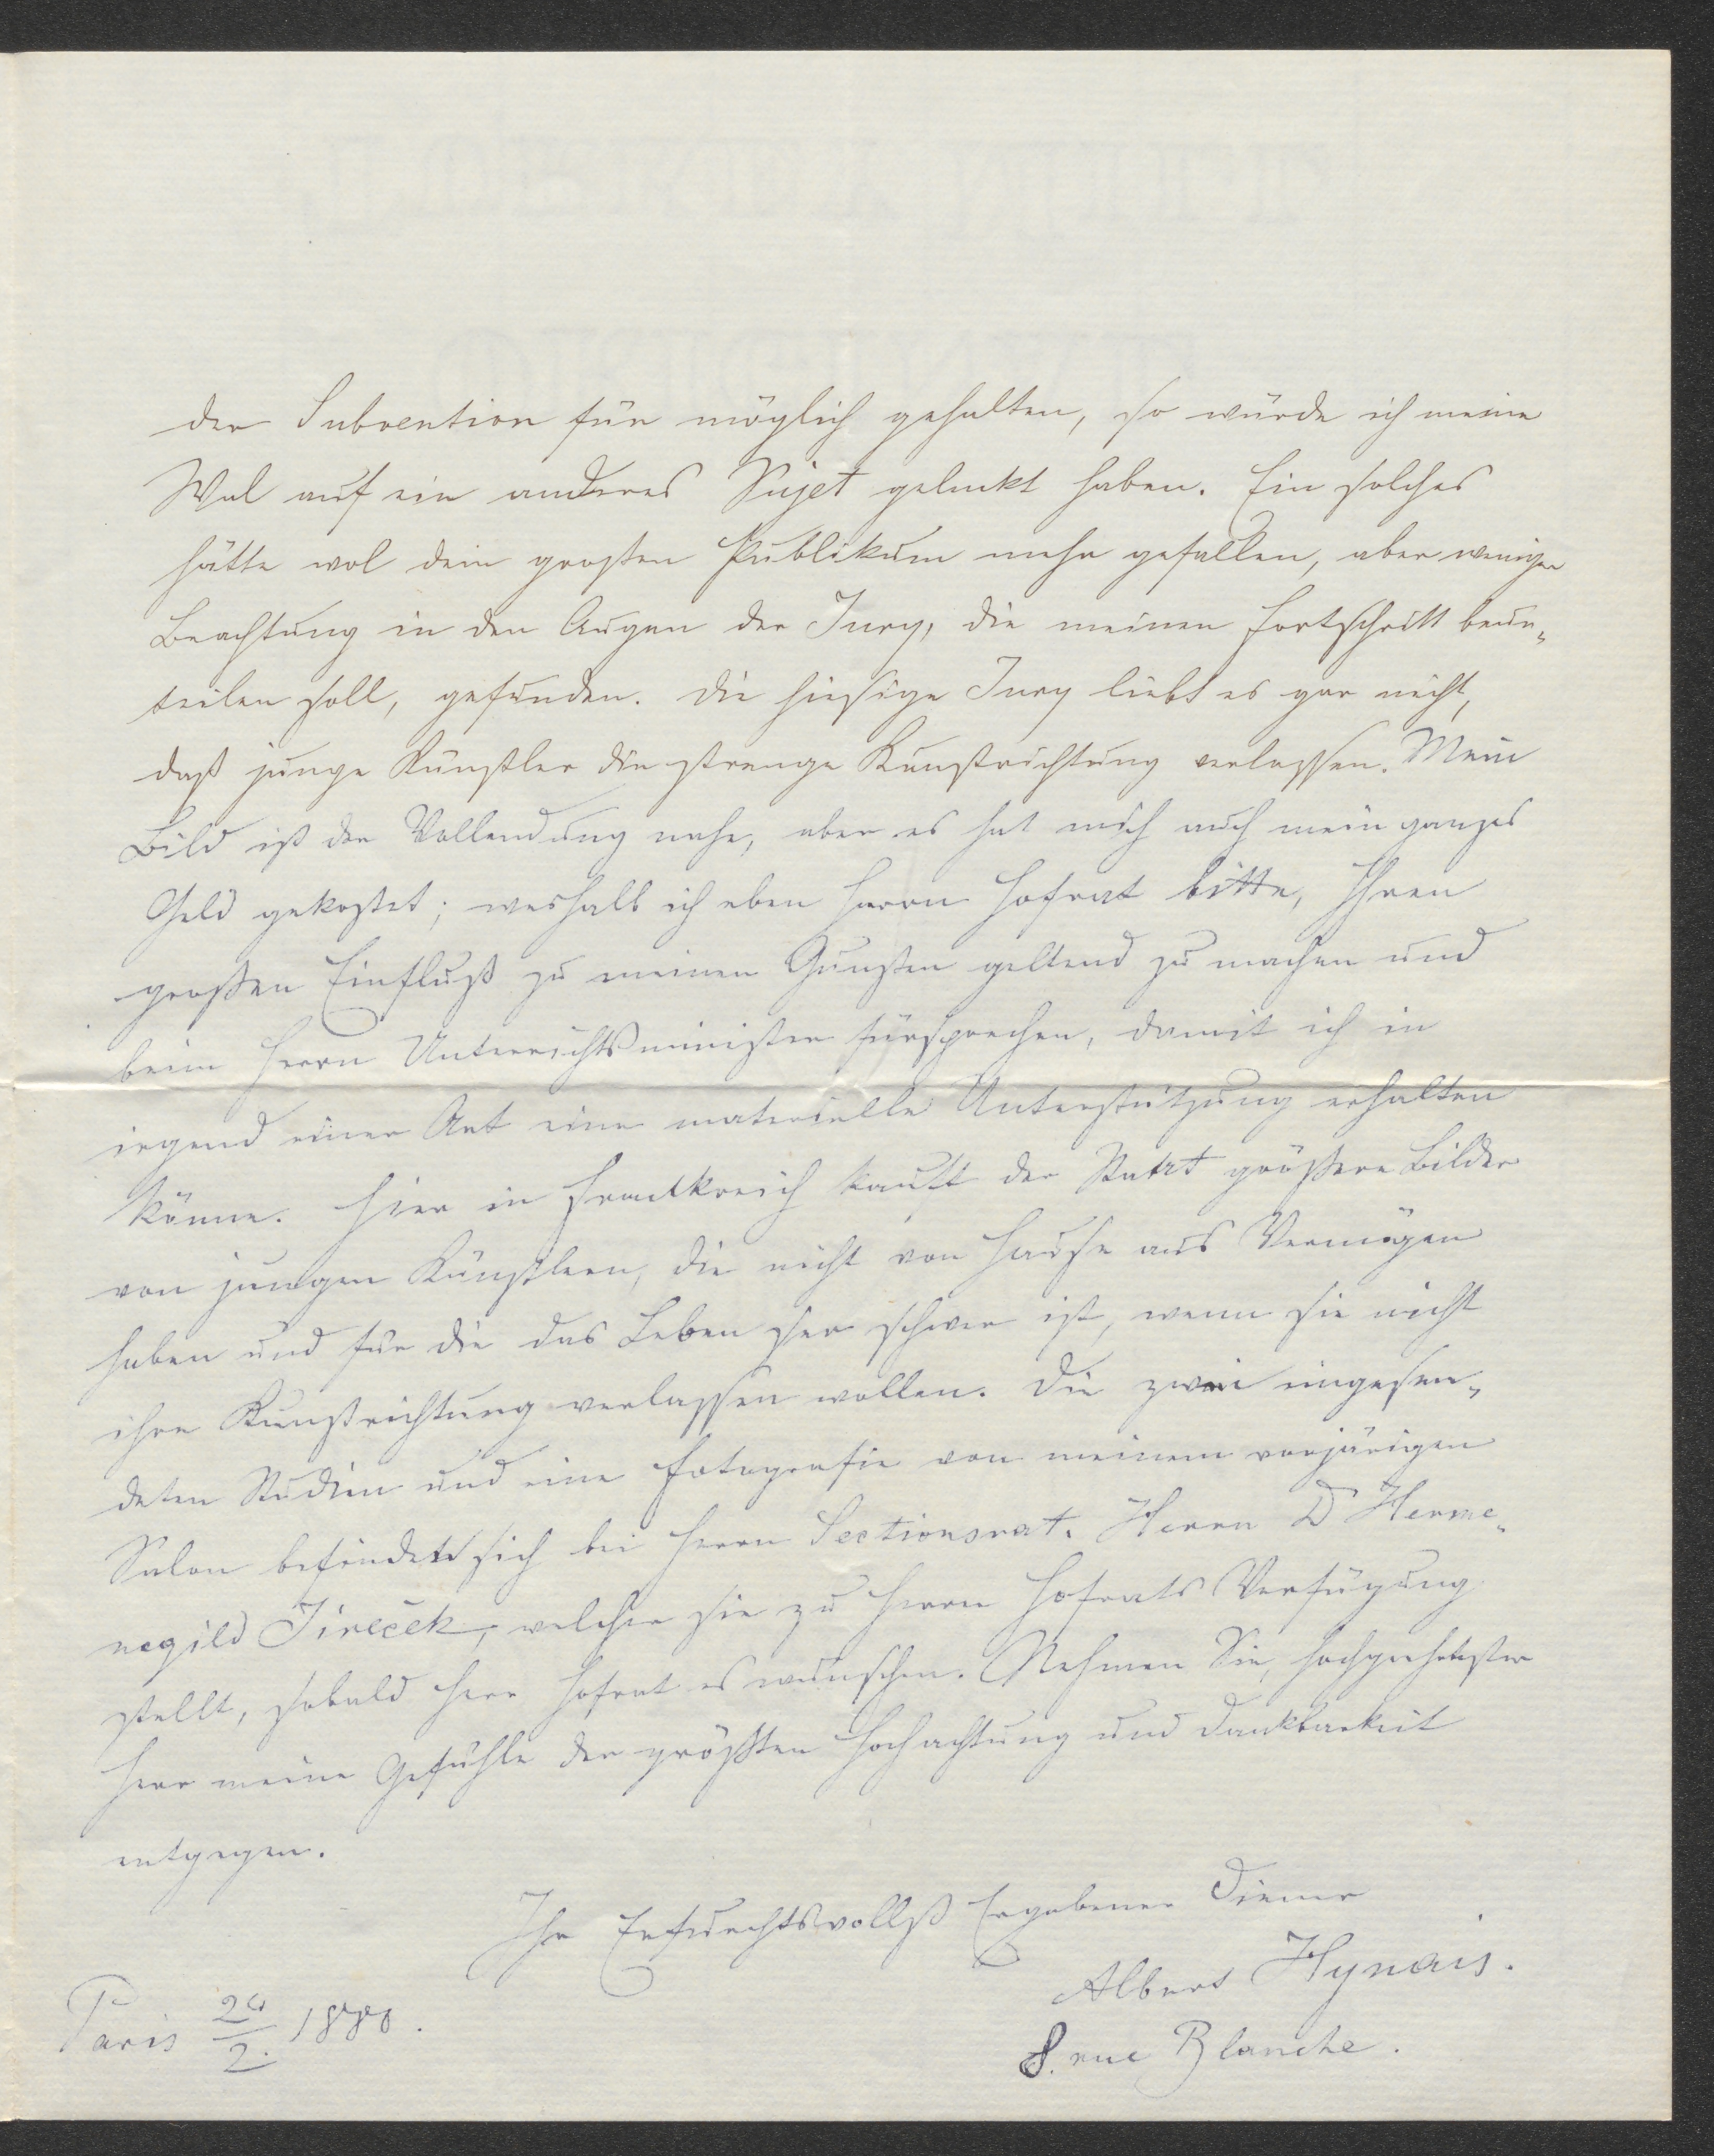 der Subvention für möglich gehalten, so würde ich meine
Wal auf ein anderes Sujet gelenkt haben. Ein solches
hätte wol dem großen Publikum mehr gefallen, aber weniger
Beachtung in den Augen der Jury, die meinen Fortschritt beur„
teilen soll, gefunden. Die hiesige Jury liebt es gar nicht,
daß junge Künstler die strenge Kunstrichtung verlassen. Mein
Bild ist der Vollendung nahe, aber es hat mich auch mein ganzes
Geld gekostet; weshalb ich eben Herrn Hofrat bitte, Ihren
großen Einfluß zu meinen Gunsten geltend zu machen und
beim Herrn Unterrichtsminister fürsprechen, damit ich in
irgend einer Art eine materielle Unterstützung erhalten
könne. Hier in Frankreich kauft der Statt größere Bilder
von jungen Künstlern, die nicht von Hause aus Vermögen
haben und für die das Leben ser schwer ist, wenn sie nicht
ihre Kunstrichtung verlassen wollen. Die zwei eingesen„
deten Studien und eine Fotografie von meinem vorjärigen
Salon befinden sich bei Herrn Sectionsrat. Herrn Dr Herme„
negild Jireček, welcher sie zu Herrn Hofrats Verfügung
stellt, sobald Herr Hofrat es wünschen. Nehmen Sie, hochgeehrtester
Herr meine Gefühle der größten Hochachtung und Dankbarkeit
entgegen.
Ihr Erfurchtsvollst Ergebener Diener
Albert Hynais.
Paris 24/2. 1880.
8. rue Blanche.